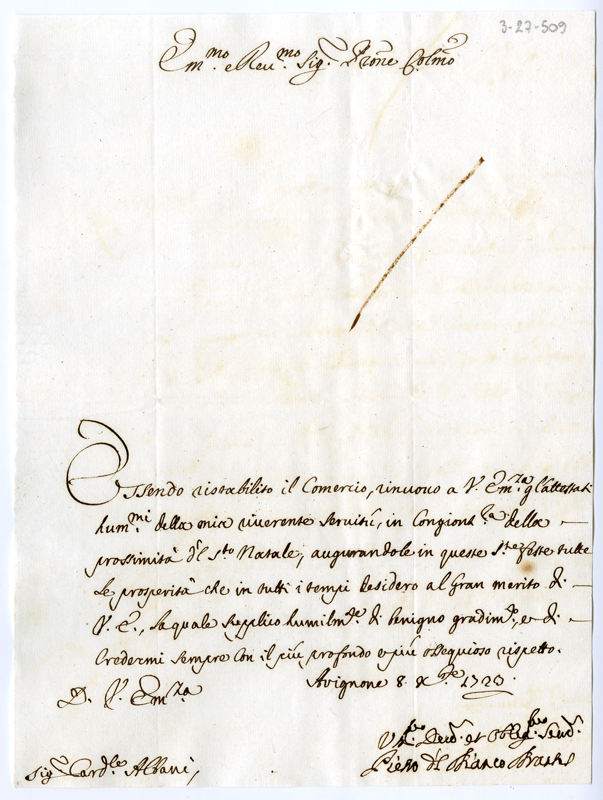 3-27-509
Em.mo e Reu.mo Sig.r Prone Colmo
Essendo ristabilito il Comercio, rinuouo a V. Em.za gl'attestati
hum.mi della mia riuerente seruitù, in Congiont.ra della
prossimità d'l s.to Natale, augurandole in queste S.te feste tutte
le prosperità che in tutti i tempi desidero al gran merito di
V. E., la quale supplico humilm.te di benigno gradim.to, e di
Credermi sempre con il più profondo e più ossequioso rispetto.
Auignone 8. X.bre 1723.
D. V. Em.za
V.ro Deu.mo et Obblig.mo Seru.
Sig.r Card.le Albani,
Piero d'l Bianco